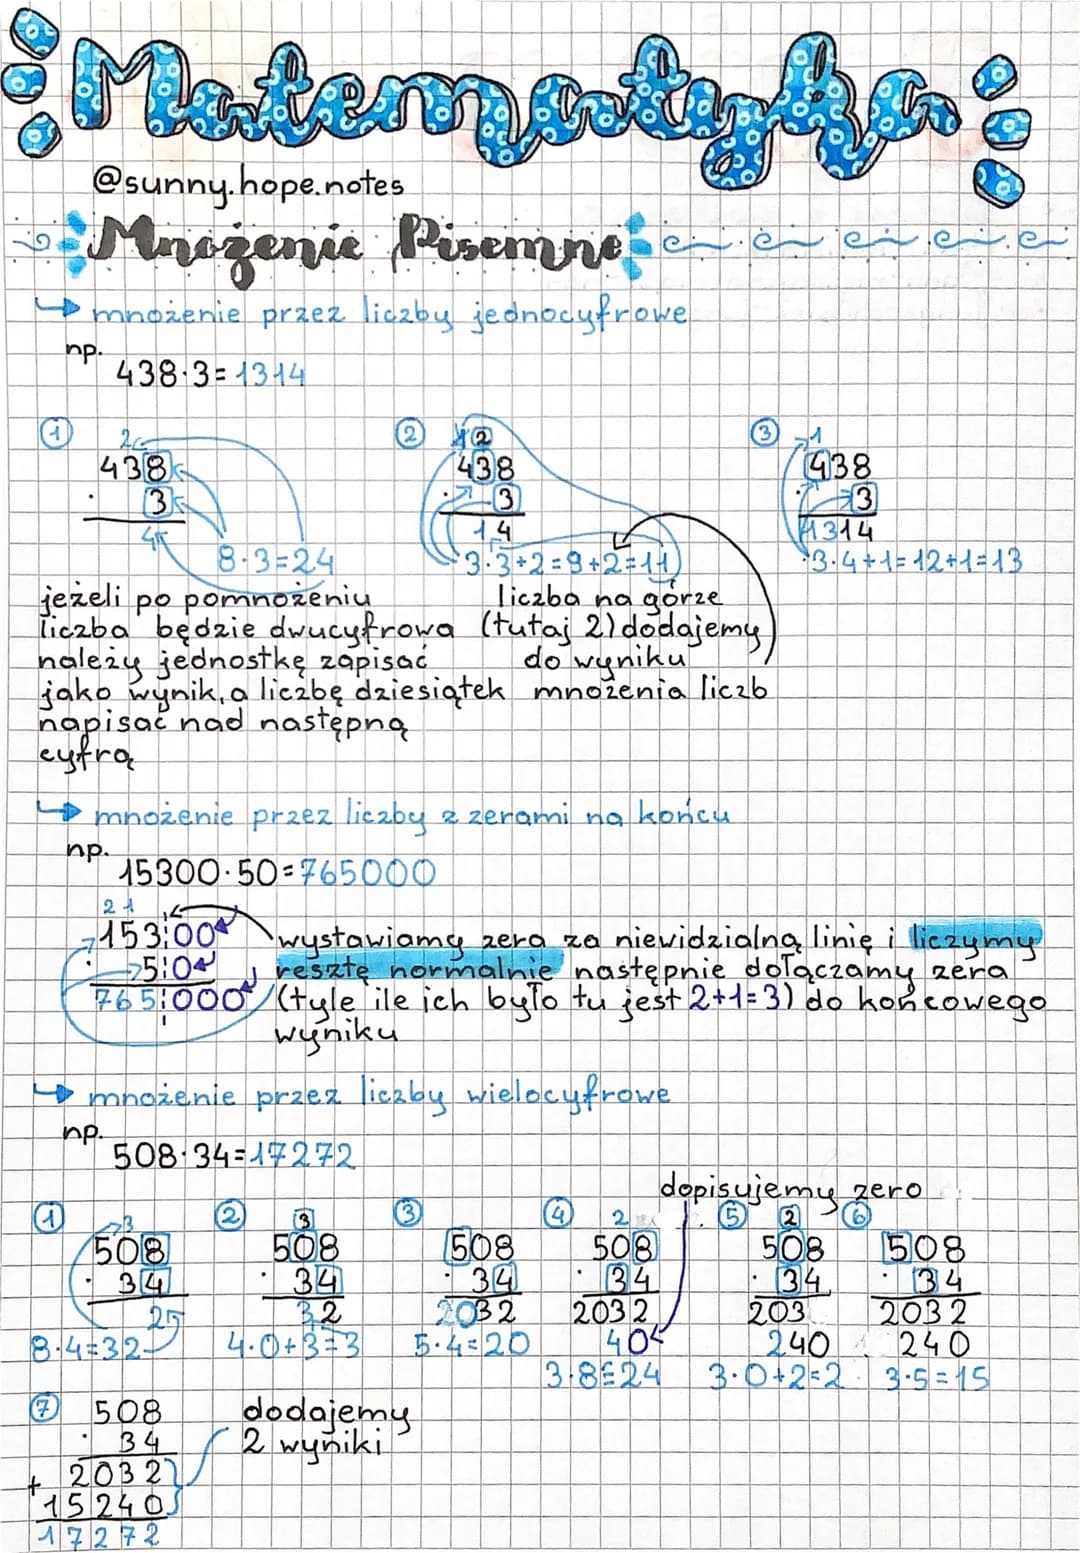 Matematyka
@sunny.hope.notes
Mnożenie Pisemne
mnożenie przez liczby jednocyfrowe
np.
438·3=1314
1
2
438
· 3
4
8·3=24
jeżeli po pomnożeniu
liczba będzie dwucyfrowa
należy jednostkę zapisać
jako wynik, a liczbę dziesiątek
napisać nad następną
cyfrą
2
1 2
438
· 3
14
3·3+2=9+2=11
liczba na górze
(tutaj 2) dodajemy
do wyniku
mnożenia liczb
3
1
438
· 3
1314
3·4+1=12+1=13
mnożenie przez liczby z zerami na końcu
np.
15300·50=765000
2 1
153 00
· 5 0
765 000
wystawiamy zera za niewidzialną linię i liczymy
resztę normalnie następnie dołączamy zera
(tyle ile ich było tu jest 2+1=3) do końcowego
wyniku
mnożenie przez liczby wielocyfrowe
np.
508·34=17272
1
3
508
· 34
8·4=32
2
3
508
· 34
32
4·0+3=3
3
508
· 34
2032
5·4=20
dopisujemy zero
4
2
508
· 34
2032
40
3·8=24
5
2
508
· 34
203
240
3·0+2=2
6
508
· 34
2032
240
3·5=15
7
508
· 34
2032
+ 15240
17272
dodajemy
2 wyniki